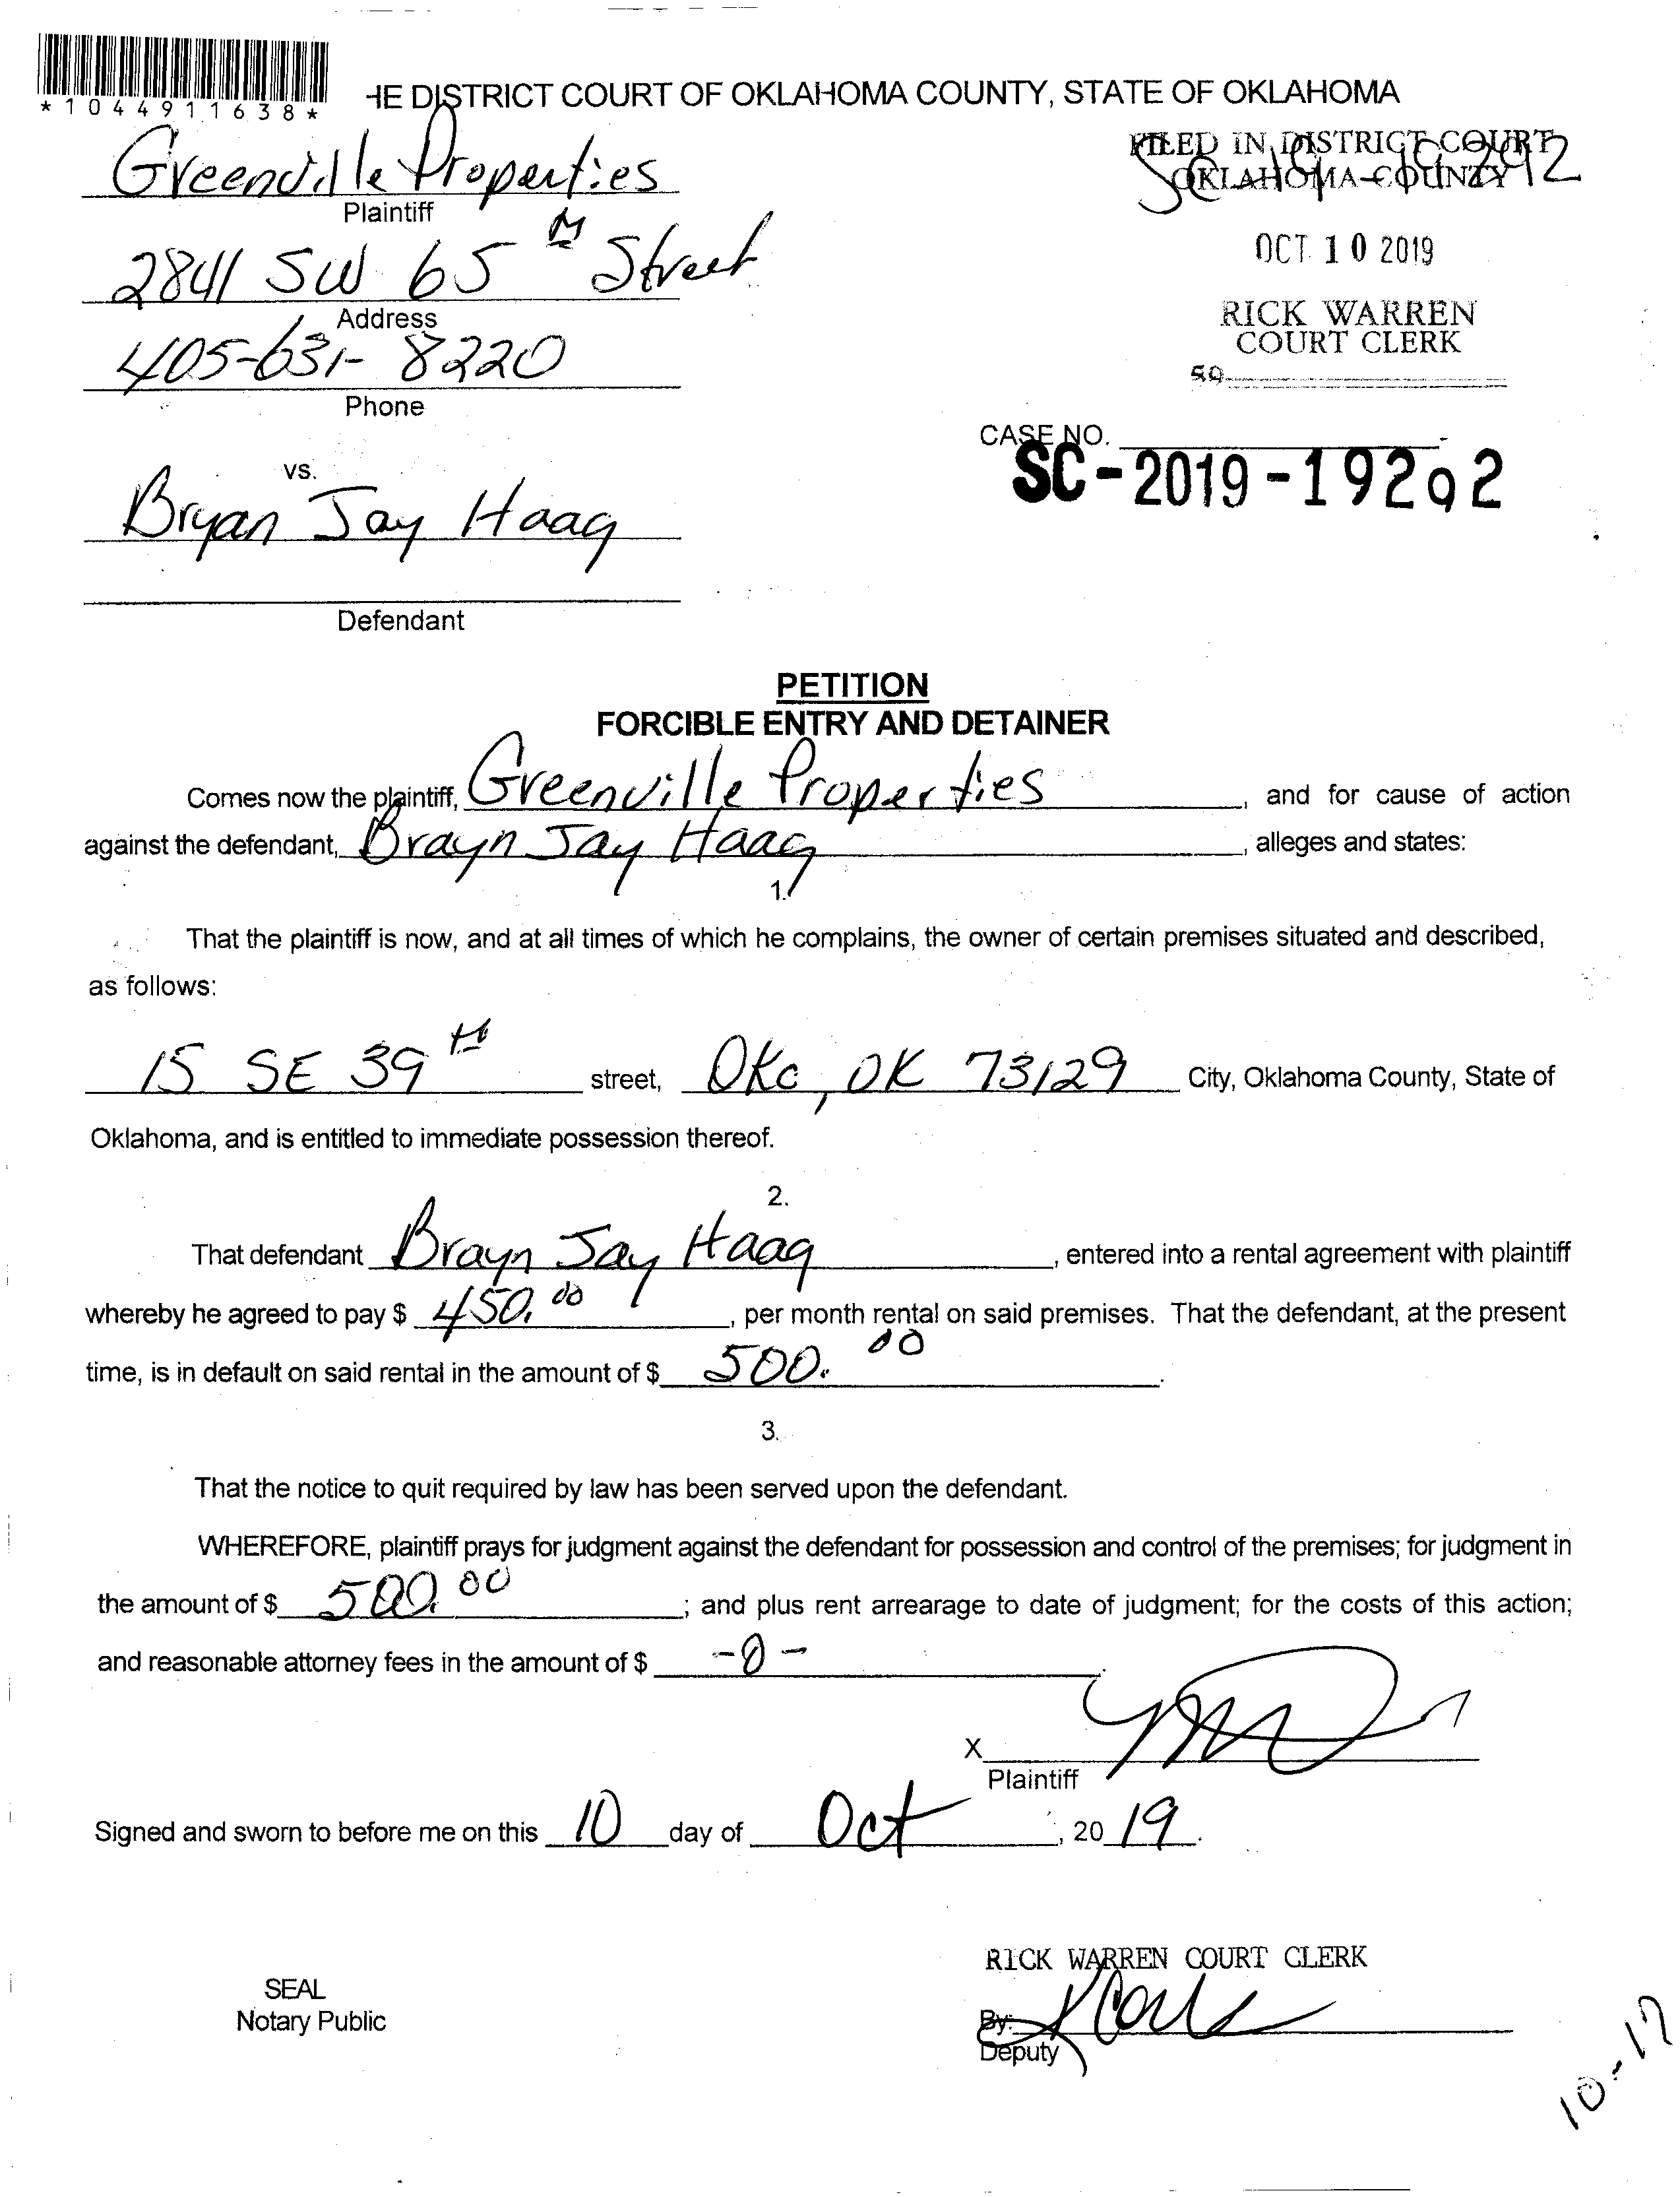 *1044911638*
HE DISTRICT COURT OF OKLAHOMA COUNTY, STATE OF OKLAHOMA
Greenville Properties
Plaintiff
FILED IN DISTRICT COURT
OKLAHOMA COUNTY
SC 19-19292
2841 SW 65th Street
Address
OCT 10 2019
RICK WARREN
COURT CLERK
405-631-8220
Phone
59
CASE NO.
SC-2019-19292
vs.
Bryan Jay Haag
Defendant
PETITION
FORCIBLE ENTRY AND DETAINER
Comes now the plaintiff, Greenville Properties, and for cause of action
against the defendant, Brayn Jay Haag, alleges and states:
1.
That the plaintiff is now, and at all times of which he complains, the owner of certain premises situated and described,
as follows:
15 SE 39th street, OKC, OK 73129 City, Oklahoma County, State of
Oklahoma, and is entitled to immediate possession thereof.
2.
That defendant Brayn Jay Haag, entered into a rental agreement with plaintiff
whereby he agreed to pay $ 450.00, per month rental on said premises. That the defendant, at the present
time, is in default on said rental in the amount of $ 500.00.
3.
That the notice to quit required by law has been served upon the defendant.
WHEREFORE, plaintiff prays for judgment against the defendant for possession and control of the premises; for judgment in
the amount of $ 500.00; and plus rent arrearage to date of judgment; for the costs of this action;
and reasonable attorney fees in the amount of $ -0-.
X
Plaintiff
Signed and sworn to before me on this 10 day of Oct, 2019.
RICK WARREN COURT CLERK
SEAL
Notary Public
By:
Deputy
10-17